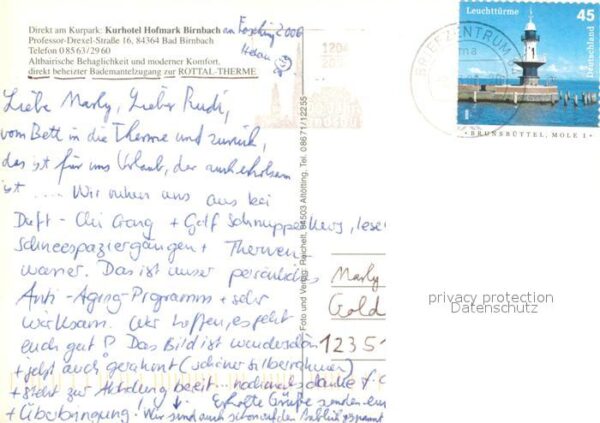 Direkt am Kurpark: Kurhotel Hofmark Birnbach am Fasching 2006
Professor-Drexel-Straße 16, 84364 Bad Birnbach
Telefon 0 85 63/29 60
Altbairische Behaglichkeit und moderner Komfort,
direkt beheizter Bademantelzugang zur ROTTAL-THERME.
Helau
Liebe Marly, Lieber Rudi,
vom Bett in die Therme und zurück,
das ist für uns Urlaub, der auch erholsam
ist .... Wir ruhen uns aus bei
Duft - Chi Gong + Golf Schnupperkurs, lesen
Schneespaziergängen + Thermen
wasser. Das ist unser persönliches
Anti-Aging-Programm + sehr
wirksam. Wir hoffen, es geht
euch gut? Das Bild ist wunderschön
+ jetzt auch gerahmt (schöner Silberrahmen)
+ steht zur Abholung bereit... nochmals danke f.
+ Überbringung! Erholte Grüße senden
Wir sind auch schon auf den Anblick gespannt
Foto und Verlag: Reichelt, 84503 Altötting, Tel. 08671/12255
1204
Leuchttürme
45
Deutschland
BRUNSBÜTTEL, MOLE 1
BRIEFZENTRUM
Marly
Gold
12351
privacy protection
Datenschutz